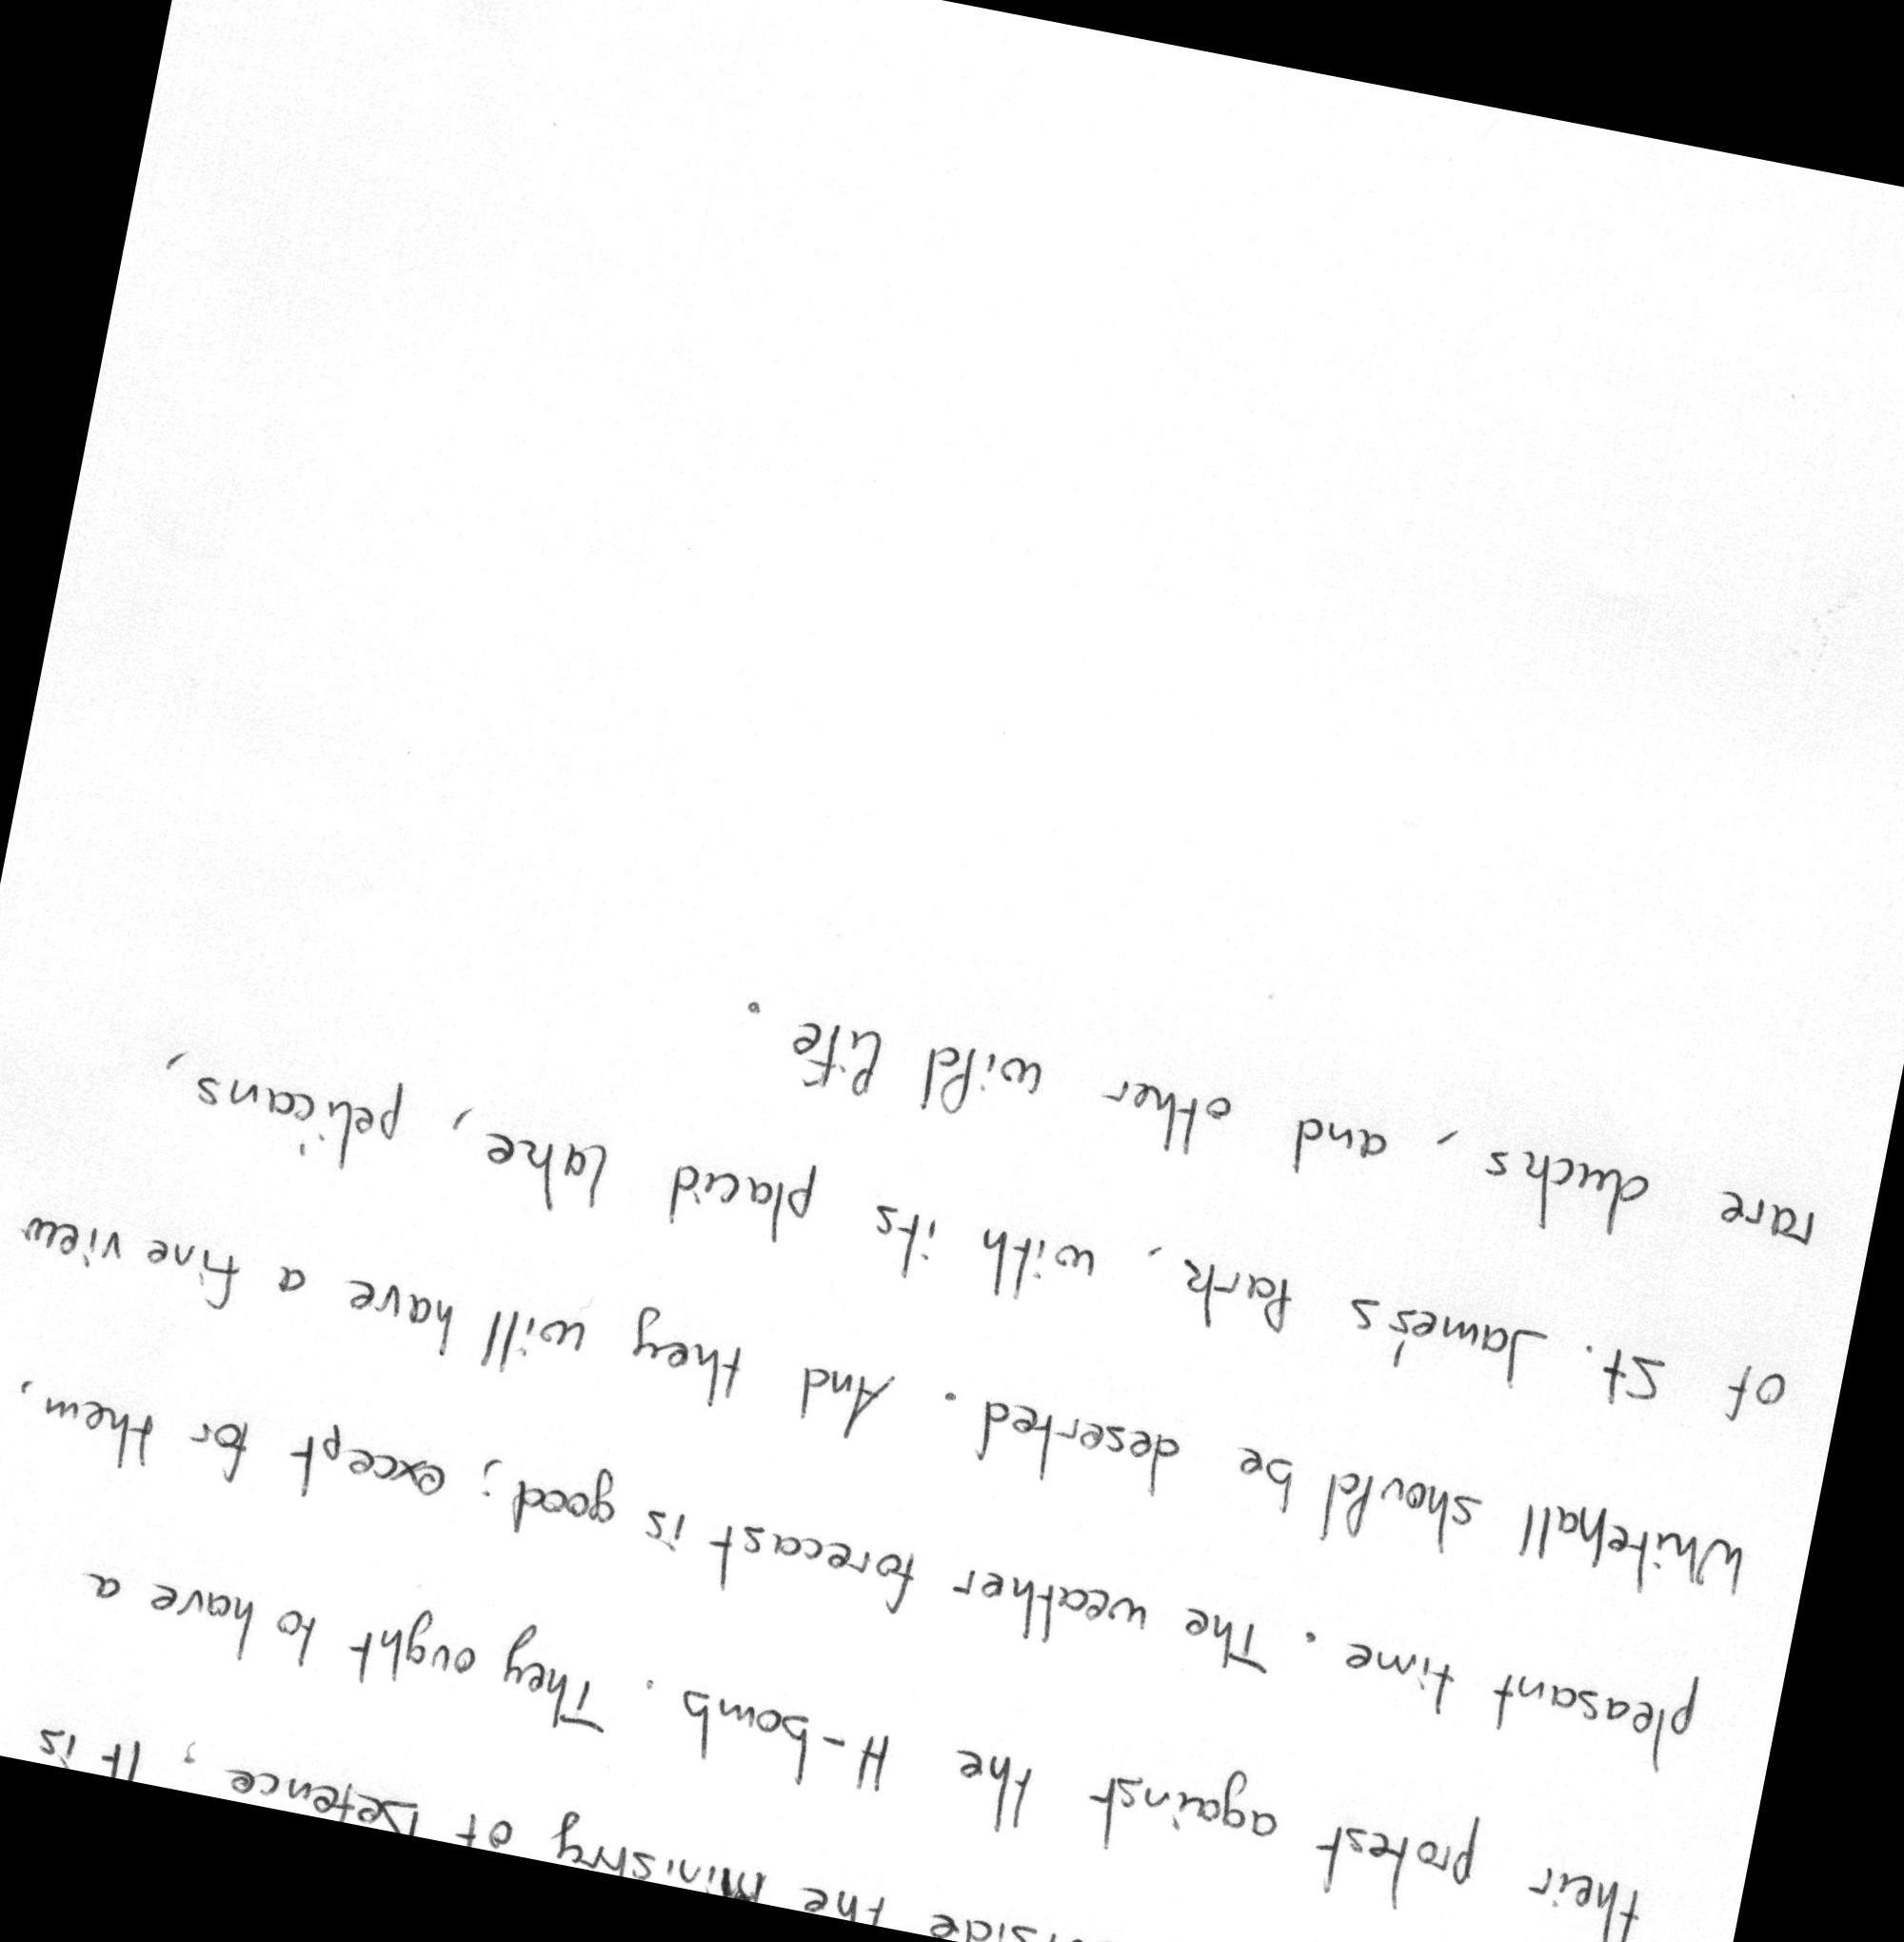 the Ministry of Defence, It is
their protest against the H-bomb. They ought to have a
pleasant time. The weather forecast is good; except for them,
Whitehall should be deserted. And they will have a fine view
of St. James's Park, with its placid lake, pelicans,
rare ducks, and other wild life.